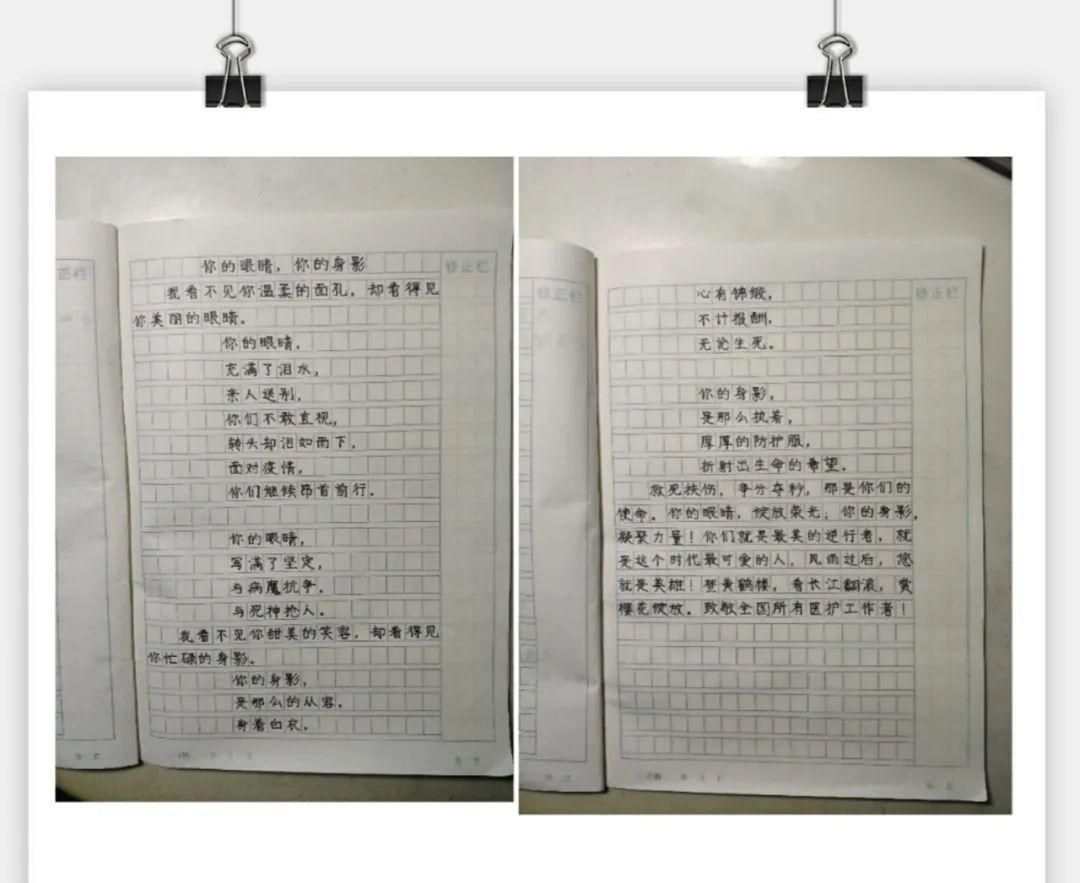 你的眼睛，你的身影
修正栏
我看不见你温柔的面孔，却看得见
你美丽的眼睛。
你的眼睛，
充满了泪水，
亲人送别，
你们不敢直视，
转头却泪如雨下，
面对疫情，
你们继续昂首前行。
你的眼睛，
写满了坚定，
与病魔抗争，
与死神抢人。
我看不见你甜美的笑容，却看得见
你忙碌的身影。
你的身影，
是那么的从容。
身着白衣，
修正栏
心有锦缎，
修正栏
不计报酬，
无论生死。
你的身影，
是那么执着，
厚厚的防护服，
折射出生命的希望。
救死扶伤，争分夺秒，那是你们的
使命。你的眼睛，绽放荣光；你的身影，
凝聚力量！你们就是最美的逆行者，就
是这个时代最可爱的人，风雨过后，您
就是英雄！登黄鹤楼，看长江翻滚，赏
樱花绽放。致敬全国所有医护工作者！